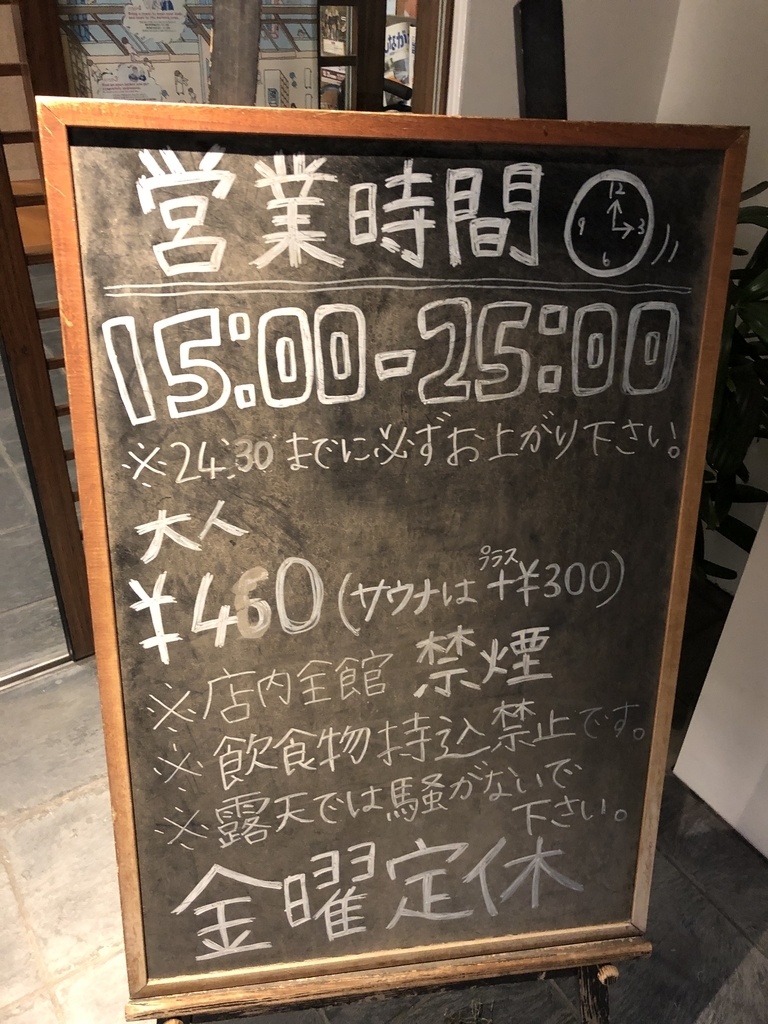 営業時間 12 3 6 9
15:00-25:00
※24:30までに必ずお上がり下さい。
大人
プラス
¥460(サウナは+¥300)
※店内全館 禁煙
※飲食物持込禁止です。
※露天では騒がないで
下さい。
金曜定休